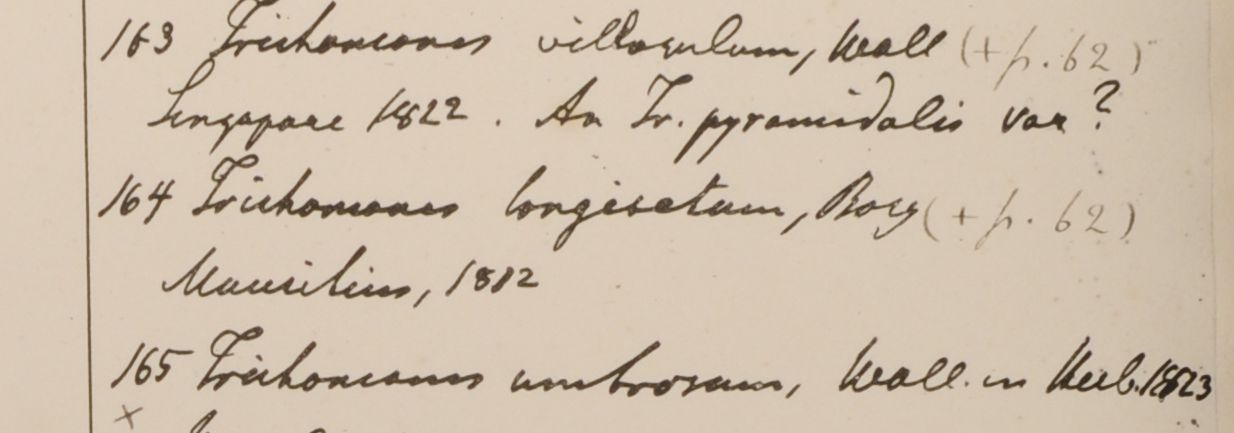 163 Trichomanes villosulum, Wall (+ p. 62)
Singapore 1822. An Tr. pyramidalis var?
164 Trichomanes longisetum, Bory (+ p. 62)
Mauritius, 1812
165 Trichomanes umbrosum, Wall. in Herb. 1823
x